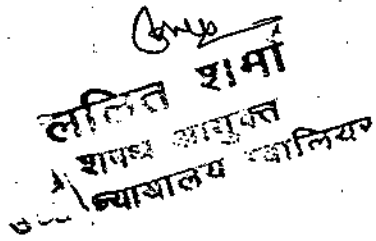 ललित शर्मा
शपथ आयुक्त
न्यायालय ग्वालियर